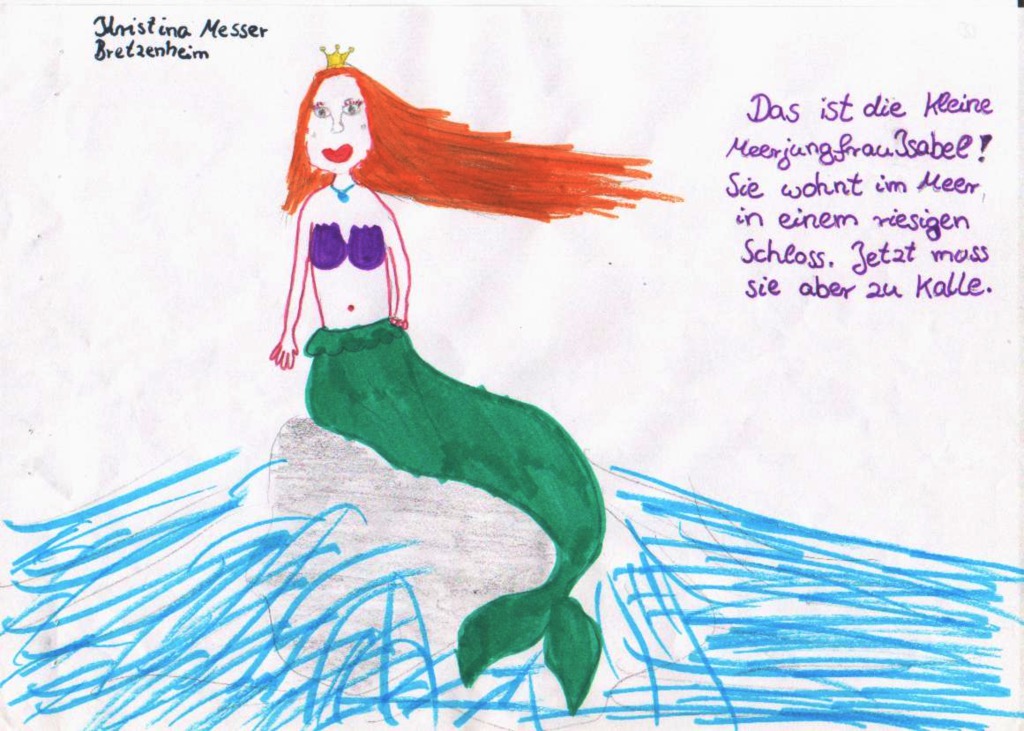 Christina Messer
Bretzenheim
Das ist die kleine
Meerjungfrau Isabel!
Sie wohnt im Meer,
in einem riesigen
Schloss. Jetzt muss
sie aber zu Kalle.